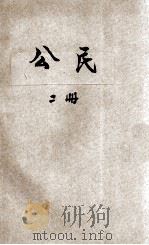 公民
二册
研狗
mtoou.info